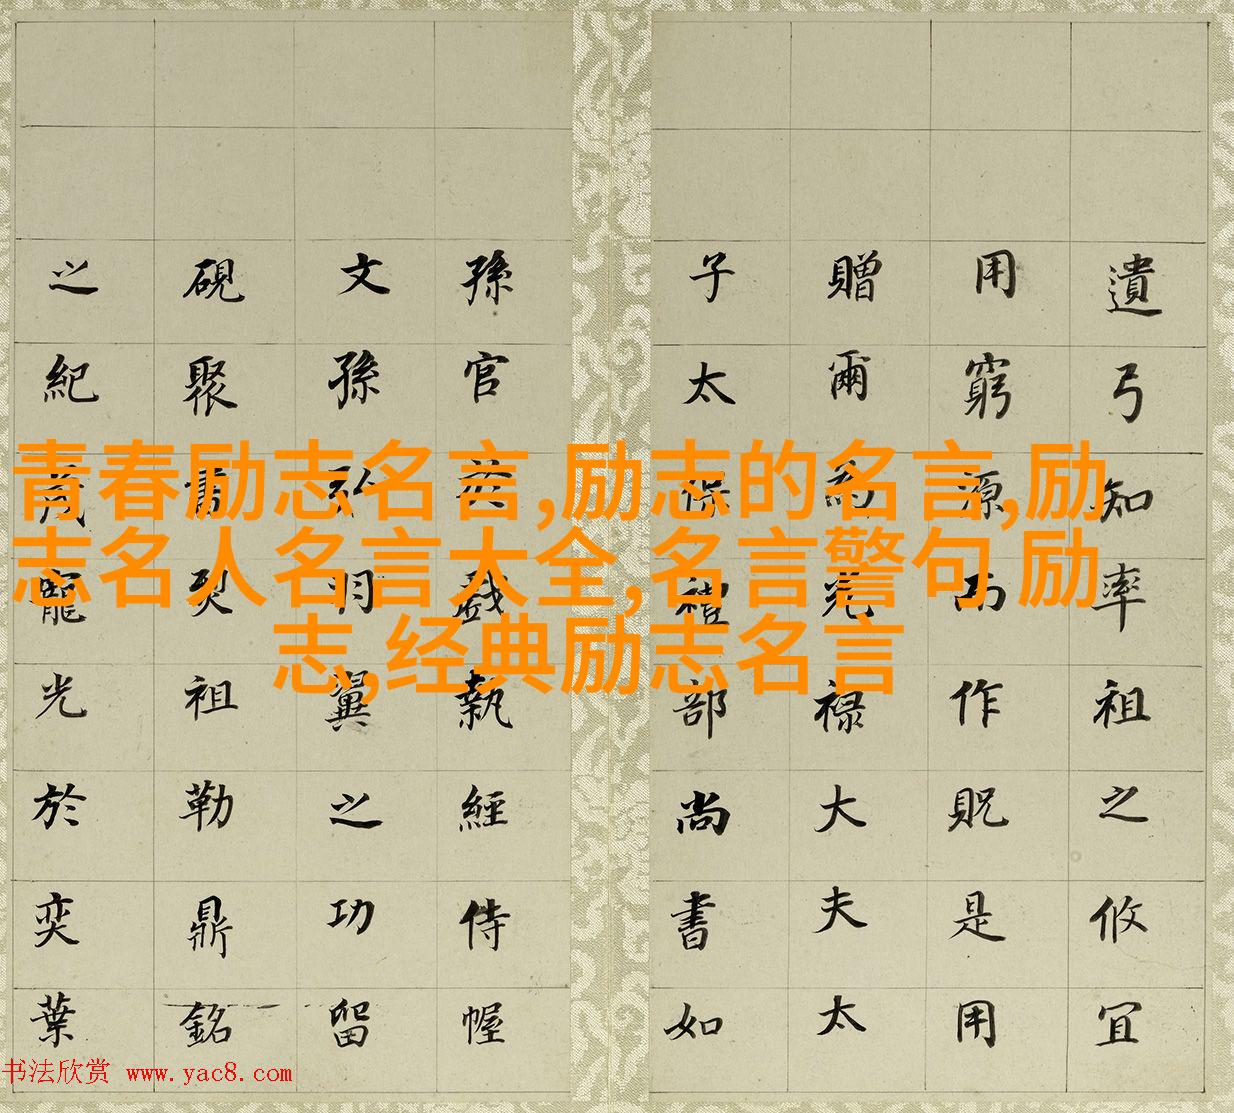 遺弓知率祖之攸宜
用窮源而作貺是用
贈爾為光禄大夫太
子太保禮部尚書如
孫官執經侍幄
文孫羽翼之功留
硯聚書祖勒鼎銘
之紀寵光於奕葉
青春励志名言,励志的名言,励
志名人名言大全,名言警句,励
志,经典励志名言
书法欣赏 www.yac8.com